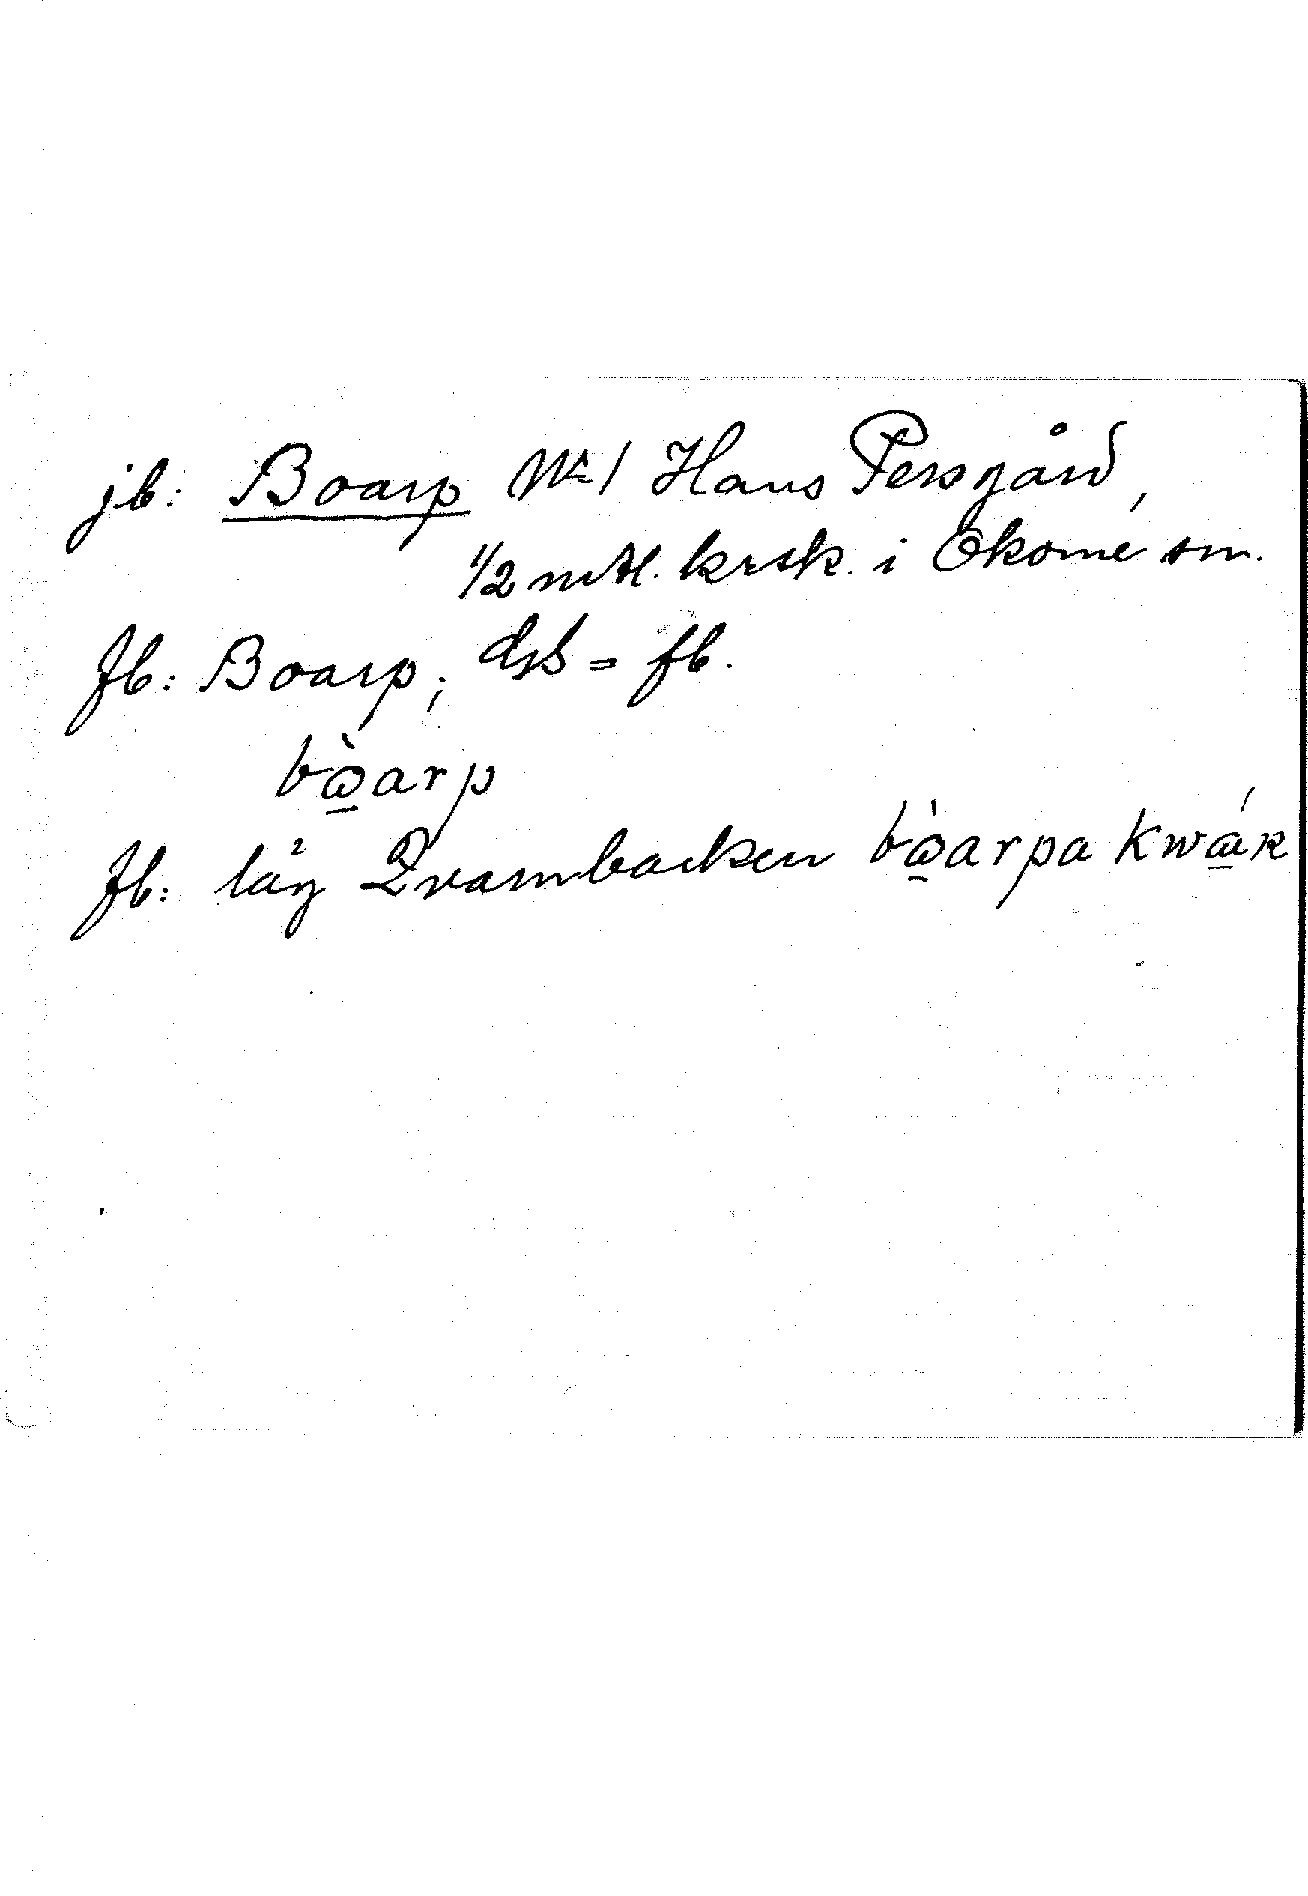 jb: Boarp No 1 Hans Persgård,
1/2 mtl. krsk. i Okome sn.
fb: Boarp; dsb = fb.
bɷ̠̀arp
fb: låg Qvarnbacken bɷ̠̀arpa kwɷ̠́k